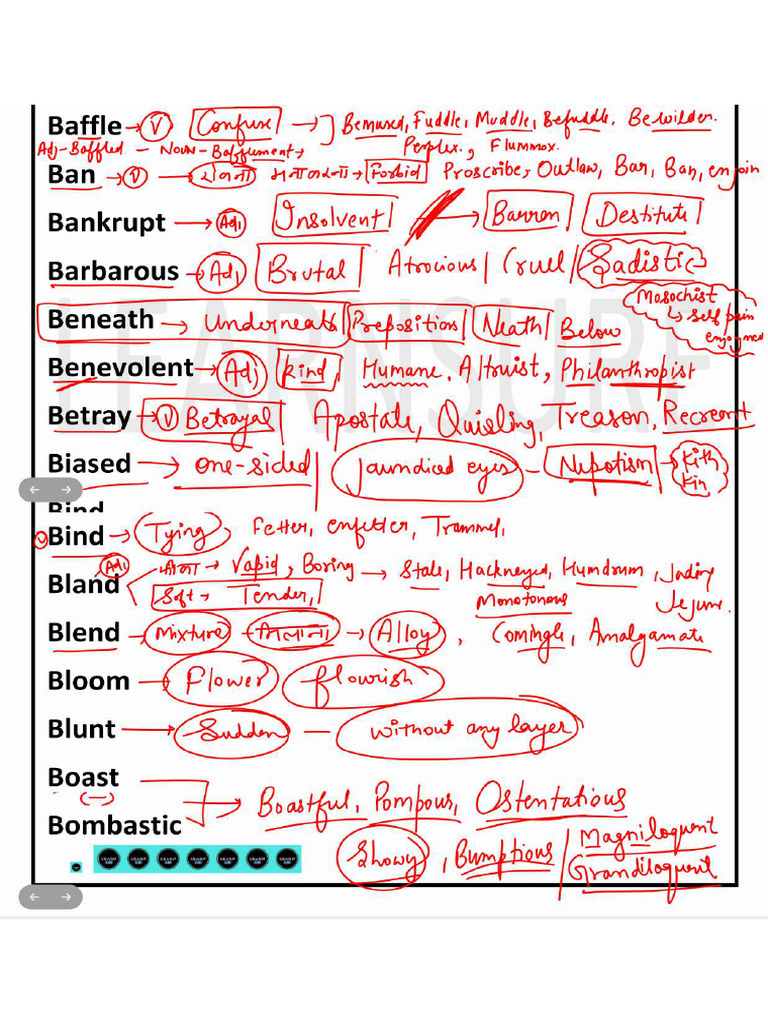 Baffle → (V) Confuse → Bemused, Fuddle, Muddle, Befuddle, Bewilder.
Adj-Baffled - Noun-Bafflement → Perplex, Flummox.
Ban → (V) → मना करना → Forbid Proscribe, Outlaw, Bar, Ban, enjoin
Bankrupt → Adj Insolvent → Barren Destitute
Barbarous → Adj Brutal Atrocious / Cruel / Sadistic
Masochist
↳ self pain
enjoyned
Beneath → Underneats Prepositions Neath Below
Benevolent → Adj kind, Humane, Altruist, Philanthropist
Betray → (V) Betrayal Apostate, Quisling, Treason, Recreant
Biased → one-sided Jaundiced eyes - Nepotism → Kith Kin
Bind
(V) Bind → Tying, Fetter, enfetter, Trammel,
Adj
Bland → Vapid, Boring → Stale, Hackneyed, Humdrum, Jading
Soft → Tender, Monotonous Jejune.
Blend → Mixture → मिलाना → Alloy, Comingle, Amalgamate
Bloom → Flower flourish
Blunt → Sudden — without any layer
Boast
(-)
→ Boastful, Pompous, Ostentatious
Bombastic
Showy, Bumptious / Magniloquent
Grandiloquent
LEARNSURE